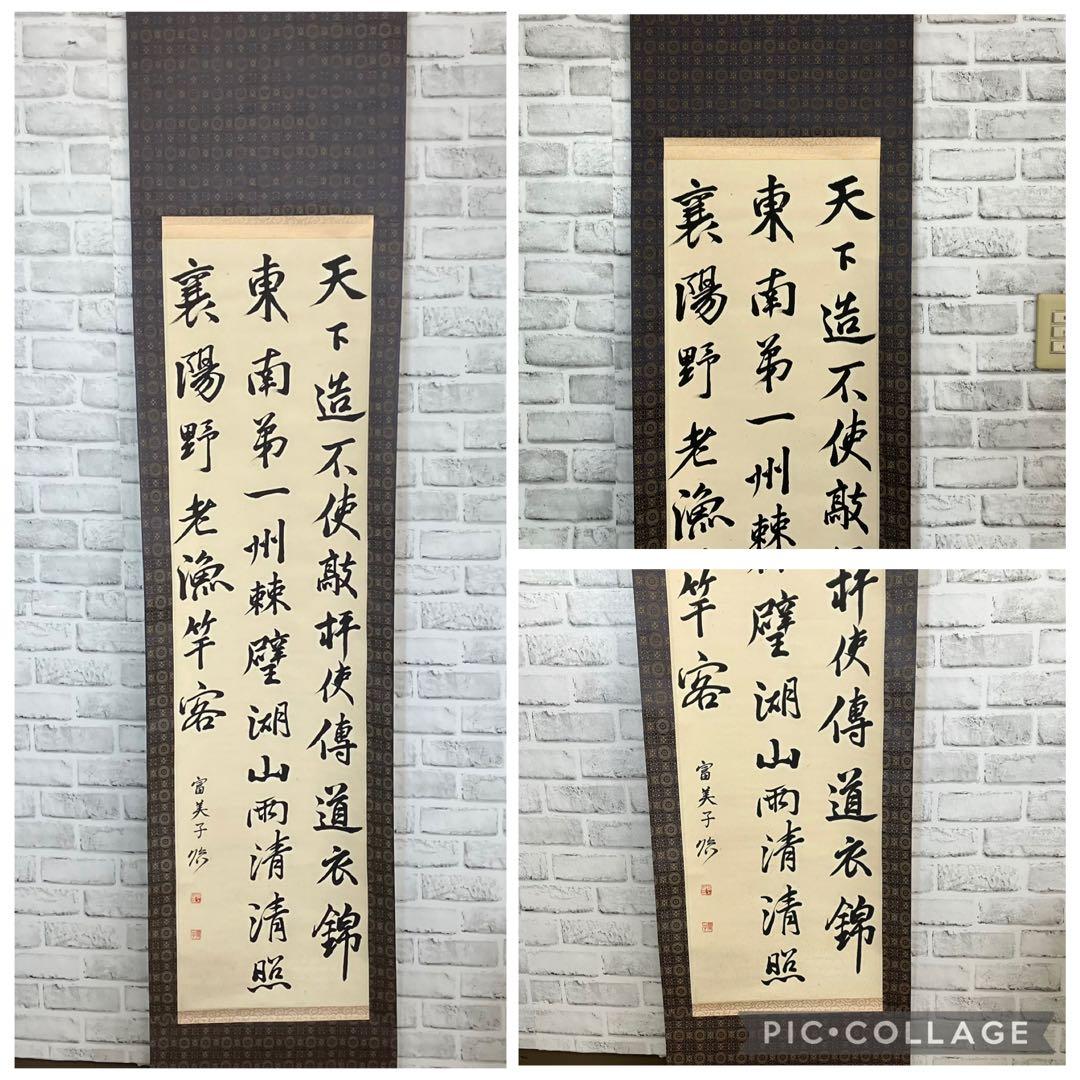 天下造不使敲枰使傳道衣錦
東南弟一州棘璧湖山兩清清照
襄陽野老漁竿客
富美子
天下造不使敲
東南弟一州棘
襄陽野老漁
枰使傳道衣錦
璧湖山兩清清照
竿客
富美子
PIC•COLLAGE